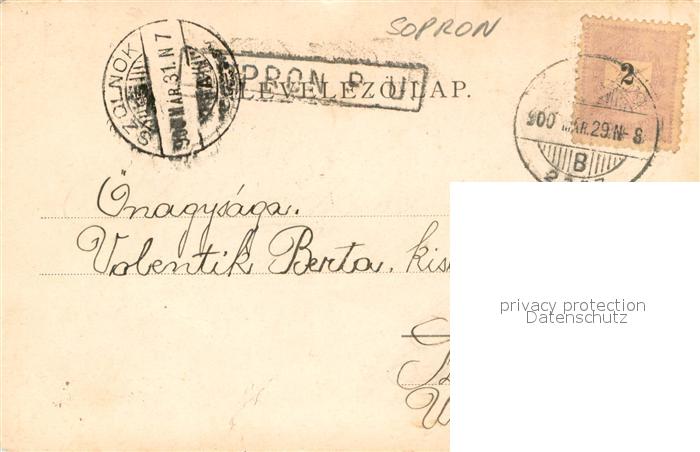 SOPRON
SZOLNOK
900 MÁR.31.N7
SOPRON P. U
LEVELEZŐLAP.
2
900 MÁR.29.N-8
B
Őnagysága.
Valentik Berta. kis
privacy protection
Datenschutz